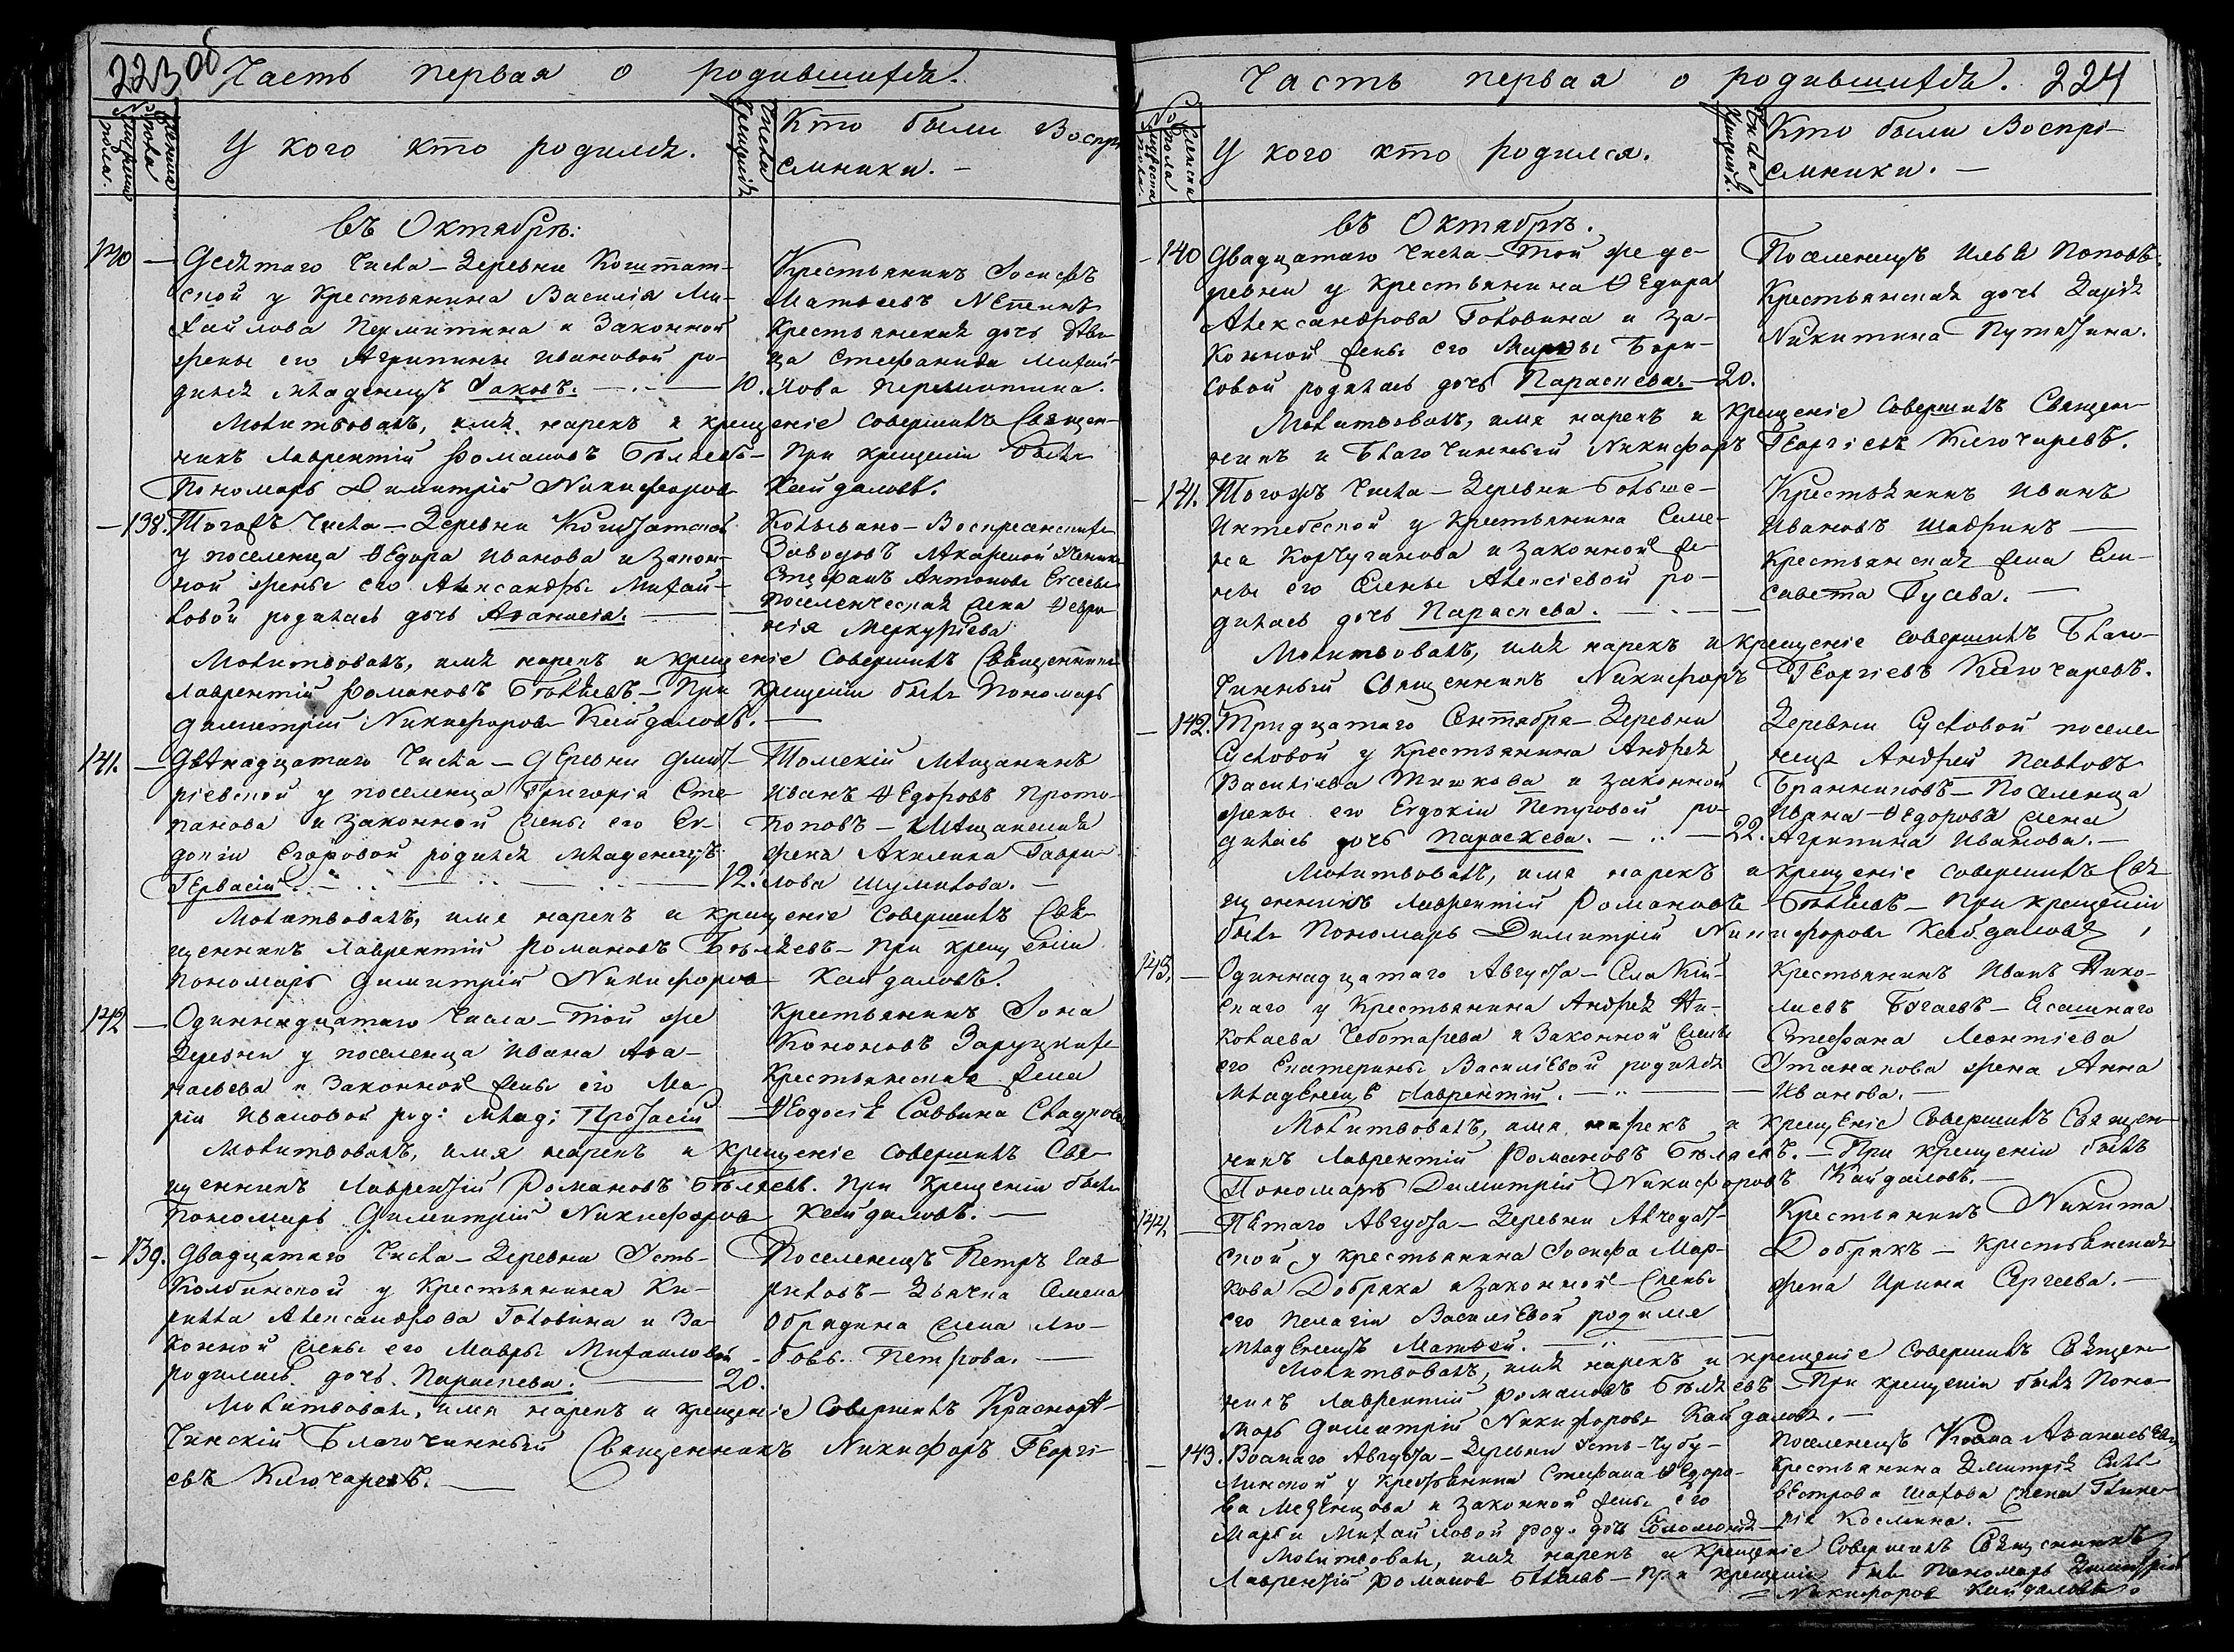 223 об
Часть первая о родившихся.
№ мужеска пола.
женска пола
У кого кто родился.
Числа крещенія
Кто были Воспрі-
емники. -
въ Октябрѣ:
140 — Десятаго Числа - Деревни
ской у Крестьянина Василія Ми-
хайлова Пермитина и Законной
жены его Агрипины Ивановой ро-
дился младенецъ Іаковъ. — 10.
Крестьянинъ Іосифъ
Матвеевъ
Крестьянская дочь Дѣви-
ца Стефанида Михай-
лова Пермитина.
Молитвовалъ, имя нарекъ и крещеніе совершилъ Священ-
никъ Лаврентій Романовъ Бѣляевъ - При крещеніи былъ
Пономарь Димитрій Никифоровъ Кайдаловъ.
— 138. Тогожъ Числа - Деревни
у поселенца Ѳедора Иванова и закон-
ной жены его Александры Михай-
ловой родилась дочь Аѳанасія. —
Колывано - Воскресенскихъ
Заводовъ
Стефанъ Антоновъ Евсеевъ
поселенческая жена Февро-
нія Меркурьева
Молитвовалъ, имя нарекъ и крещеніе совершилъ Священникъ
Лаврентій Романовъ Бѣляевъ - При крещеніи былъ Пономарь
Димитрій Никифоровъ Кайдаловъ. —
141. — Двѣнадцатаго Числа - Деревни Дмит-
ріевской у поселенца Григорія Сте-
панова и законной жены его Ев-
докіи Егоровой родился младенецъ
Гервасій. — 12.
Томскій Мѣщанинъ
Иванъ Ѳедоровъ Прото-
поповъ - и Мѣщанская
жена Акилина Гаври-
лова Шумилова. —
Молитвовалъ, имя нарекъ и крещеніе совершилъ Свя-
щенникъ Лаврентій Романовъ Бѣляевъ - при крещеніи
пономарь Димитрій Никифоровъ Кайдаловъ.
142 — Одиннадцатаго Числа - Той же
Деревни у поселенца Ивана Аѳа-
насьева и Законной жены его Ма-
ріи Ивановой род: млад: Протасій —
Крестьянинъ Іона
Кононовъ Заруцкихъ
Крестьянская жена
Ѳеодосія Саввина
Молитвовалъ, имя нарекъ и крещеніе совершилъ Свя-
щенникъ Лаврентій Романовъ Бѣляевъ. При крещеніи былъ
пономарь Димитрій Никифоровъ Кайдаловъ. —
— 139. Двадцатаго Числа - Деревни Усть-
Колбинской у Крестьянина Ки-
рилла Александрова Головина и За-
конной жены его Мавры Михаиловой
родилась дочь Параскева. — 20.
Поселенецъ Петръ Гав-
риловъ - Дьячка Семена
Обрядина жена Лю-
бовь Петрова. —
Молитвовалъ, имя нарекъ и крещеніе Совершилъ Краснорѣ-
чинскій Благочинный Священникъ Никифоръ Георгі-
евъ Ключаревъ. —
Часть первая о родившихся. 224
№ мужеска пола.
женска пола
У кого кто родился.
Числа крещенія.
Кто были Воспрі-
емники. —
въ Октябрѣ.
— 140 Двадцатаго Числа - Той же де-
ревни у Крестьянина Ѳедора
Александрова Головина и За-
конной жены его Марѳы Бори-
совой родилась дочь Параскева. — 20.
Поселенецъ Илья Поповъ.
Крестьянская дочь Дарія
Никитина Путятина.
Молитвовалъ, имя нарекъ и крещеніе совершилъ Священ-
никъ и Благочинный Никифоръ Георгіевъ Ключаревъ.
— 141. Тогожъ Числа - Деревни Больше-
Интебеской у Крестьянина Семе-
на Корчуганова и законной же-
ны его Елены Алексіевой ро-
дилась дочь Параскева. —
Крестьянинъ Иванъ
Ивановъ Шадринъ —
Крестьянская жена Ели-
савета Гусева. —
Молитвовалъ, имя нарекъ и крещеніе совершилъ Благо-
чинный Священникъ Никифоръ Георгіевъ Ключаревъ.
— 142. Тридцатаго Сентября - Деревни
Сусловой у Крестьянина Андрея
Васильева Тишкова и законной
жены его Евдокіи Петровой ро-
дилась дочь Параскева. — 22.
Деревни Сусловой поселе-
нецъ Андрей Павловъ
Бранниковъ - Поселенца
Ивана Ѳедорова жена
Агрипина Иванова. —
Молитвовалъ, имя нарекъ и крещеніе совершилъ Свя-
щенникъ Лаврентій Романовъ Бѣляевъ - При крещеніи
былъ Пономарь Димитрій Никифоровъ Кайдаловъ
143. — Одиннадцатаго Августа - Села Кій-
скаго у Крестьянина Андрея Ни-
колаева Чеботарева и Законной жены
его Екатерины Василіевой родился
младенецъ Лаврентій. —
Крестьянинъ Иванъ Нико-
лаевъ Бугаевъ - Ясашнаго
Стефана Леонтіева
жена Анна
Иванова. —
Молитвовалъ, имя нарекъ и крещеніе Совершилъ Священ-
никъ Лаврентій Романовъ Бѣляевъ. - При крещеніи былъ
Пономарь Димитрій Никифоровъ Кайдаловъ. —
144 — Пятаго Августа - Деревни Алчедат-
ской у крестьянина Іосифа Мар-
кова Добряка и законной жены
его Пелагіи Василіевой родился
младенецъ Матѳей. —
Крестьянинъ Никита
Добрякъ - крестьянская
жена Ирина Сергеева. —
Молитвовалъ, имя нарекъ и крещеніе совершилъ Священ-
никъ Лаврентій Романовъ Бѣляевъ - При крещеніи былъ Поно-
марь Димитрій Никифоровъ Кайдаловъ. —
— 143. Восмаго Августа - Деревни Усть-Чубу-
линской у Крестьянина Стефана Ѳедоро-
ва Медѣнцова и законной жены его
Маріи Михайловой род. дочь Соломонія —
Поселенецъ Козма Аѳанасьевъ
крестьянина Димитрія Силь-
вестрова Шахова жена Глике-
рія Космина. —
Молитвовалъ, имя нарекъ и Крещеніе Совершилъ Священникъ
Лаврентій Романовъ Бѣляевъ - При крещеніи былъ Пономарь Димитрій
Никифоровъ Кайдаловъ